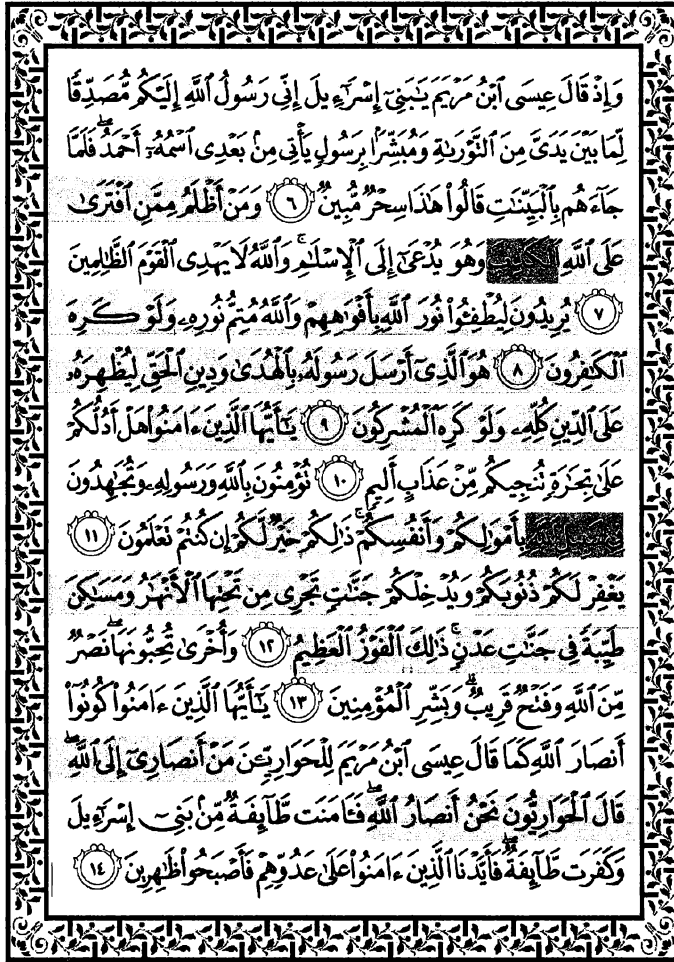 وَإِذْ قَالَ عِيسَى ٱبْنُ مَرْيَمَ يَٰبَنِىٓ إِسْرَٰٓءِيلَ إِنِّى رَسُولُ ٱللَّهِ إِلَيْكُم مُّصَدِّقًا
لِّمَا بَيْنَ يَدَىَّ مِنَ ٱلتَّوْرَىٰةِ وَمُبَشِّرًۢا بِرَسُولٍ يَأْتِى مِنۢ بَعْدِى ٱسْمُهُۥٓ أَحْمَدُ ۖ فَلَمَّا
جَآءَهُم بِٱلْبَيِّنَٰتِ قَالُوا۟ هَٰذَا سِحْرٌ مُّبِينٌ ٦ وَمَنْ أَظْلَمُ مِمَّنِ ٱفْتَرَىٰ
عَلَى ٱللَّهِ ٱلْكَذِبَ وَهُوَ يُدْعَىٰٓ إِلَى ٱلْإِسْلَٰمِ ۚ وَٱللَّهُ لَا يَهْدِى ٱلْقَوْمَ ٱلظَّٰلِمِينَ
٧ يُرِيدُونَ لِيُطْفِـُٔوا۟ نُورَ ٱللَّهِ بِأَفْوَٰهِهِمْ وَٱللَّهُ مُتِمُّ نُورِهِۦ وَلَوْ كَرِهَ
ٱلْكَٰفِرُونَ ٨ هُوَ ٱلَّذِىٓ أَرْسَلَ رَسُولَهُۥ بِٱلْهُدَىٰ وَدِينِ ٱلْحَقِّ لِيُظْهِرَهُۥ
عَلَى ٱلدِّينِ كُلِّهِۦ وَلَوْ كَرِهَ ٱلْمُشْرِكُونَ ٩ يَٰٓأَيُّهَا ٱلَّذِينَ ءَامَنُوا۟ هَلْ أَدُلُّكُمْ
عَلَىٰ تِجَٰرَةٍ تُنجِيكُم مِّنْ عَذَابٍ أَلِيمٍ ١٠ تُؤْمِنُونَ بِٱللَّهِ وَرَسُولِهِۦ وَتُجَٰهِدُونَ
فِى سَبِيلِ ٱللَّهِ بِأَمْوَٰلِكُمْ وَأَنفُسِكُمْ ۚ ذَٰلِكُمْ خَيْرٌ لَّكُمْ إِن كُنتُمْ تَعْلَمُونَ ١١
يَغْفِرْ لَكُمْ ذُنُوبَكُمْ وَيُدْخِلْكُمْ جَنَّٰتٍ تَجْرِى مِن تَحْتِهَا ٱلْأَنْهَٰرُ وَمَسَٰكِنَ
طَيِّبَةً فِى جَنَّٰتِ عَدْنٍ ۚ ذَٰلِكَ ٱلْفَوْزُ ٱلْعَظِيمُ ١٢ وَأُخْرَىٰ تُحِبُّونَهَا ۖ نَصْرٌ
مِّنَ ٱللَّهِ وَفَتْحٌ قَرِيبٌ ۗ وَبَشِّرِ ٱلْمُؤْمِنِينَ ١٣ يَٰٓأَيُّهَا ٱلَّذِينَ ءَامَنُوا۟ كُونُوٓا۟
أَنصَارَ ٱللَّهِ كَمَا قَالَ عِيسَى ٱبْنُ مَرْيَمَ لِلْحَوَارِيِّـۧنَ مَنْ أَنصَارِىٓ إِلَى ٱللَّهِ ۖ
قَالَ ٱلْحَوَارِيُّونَ نَحْنُ أَنصَارُ ٱللَّهِ ۖ فَـَٔامَنَت طَّآئِفَةٌ مِّنۢ بَنِىٓ إِسْرَٰٓءِيلَ
وَكَفَرَت طَّآئِفَةٌ ۖ فَأَيَّدْنَا ٱلَّذِينَ ءَامَنُوا۟ عَلَىٰ عَدُوِّهِمْ فَأَصْبَحُوا۟ ظَٰهِرِينَ ١٤